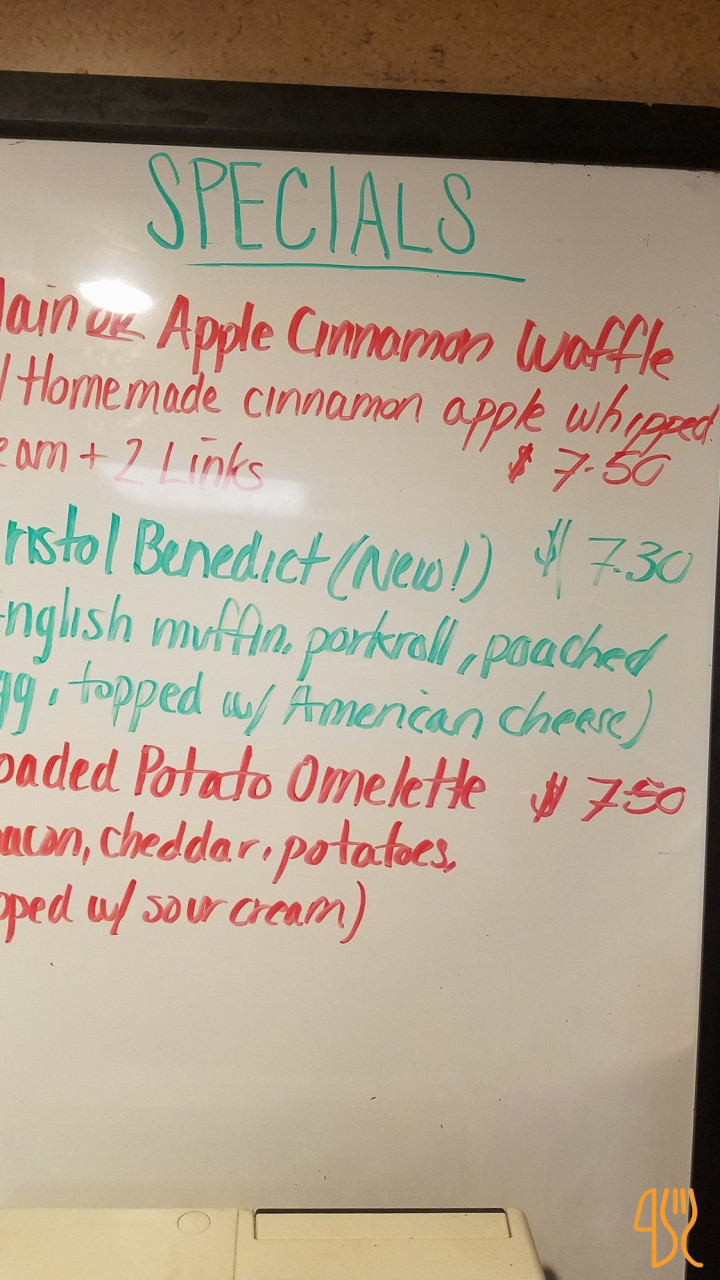 SPECIALS
lain or Apple Cinnamon Waffle
/ Homemade cinnamon apple whipped
eam + 2 Links $ 7.50
ristol Benedict (New!) $ 7.30
English muffin, porkroll, poached
gg, topped w/ American cheese)
oaded Potato Omelette $ 7.50
acon, cheddar, potatoes,
pped w/ sour cream)